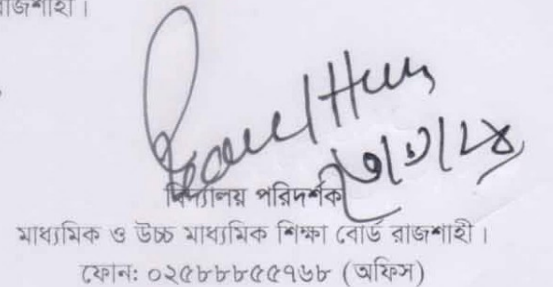 রাজশাহী।
বিদ্যালয় পরিদর্শক
মাধ্যমিক ও উচ্চ মাধ্যমিক শিক্ষা বোর্ড রাজশাহী।
ফোন: ০২৫৮৮৮৫৫৭৬৮ (অফিস)